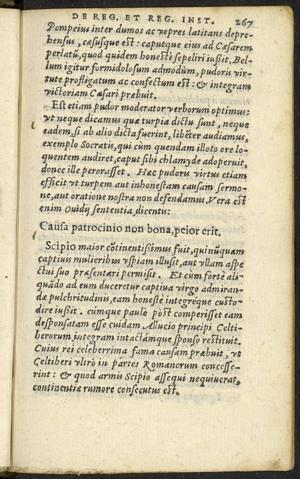 DE REG. ET REG. INST. 267
Pompeius inter dumos ac vepres latitans depre-
hensus, cæsusque est: caputque eius ad Cæsarem
perlatũ, quod quidem honeste sepeliri iußit. Bel-
lum igitur formidolosum admodum, pudoris vir-
tute profligatum ac confectum est: & integram
victoriam Cæsari præbuit.
Est etiam pudor moderator verborum optimus:
vt neque dicamus quæ turpia dictu sunt, neque
eadem, si ab alio dicta fuerint, libẽter audiamus,
exemplo Socratis, qui cùm quendam illoto ore lo-
quentem audiret, caput sibi chlamyde adoperuit,
donec ille perorasset. Hæc pudoris virtus etiam
efficit vt turpem aut inhonestam causam sermo-
ne, aut oratione nostra non defendamus. Vera est
enim Ouidij sententia dicentis:
Causa patrocinio non bona, peior erit.
Scipio maior cõtinentißimus fuit, qui nũquam
captiuis mulieribus vspiam illusit, aut vllam aspe
ctui suo præsentari permisit. Et cùm fortè ali-
quãdo ad eum duceretur captiua virgo admiran-
dæ pulchritudinis, eam honestè integréque custo-
dire iußit. cúmque paulò pòst comperisset eam
desponsatam esse cuidam Allucio principi Celti-
berorum integram intactámque sponso restituit.
Cuius rei celeberrima fama causam præbuit, vt
Celtiberi vltrò in partes Romanorum concesse-
rint: & quod armis Scipio assequi nequiuerat,
continentiæ rumore consecutus est.